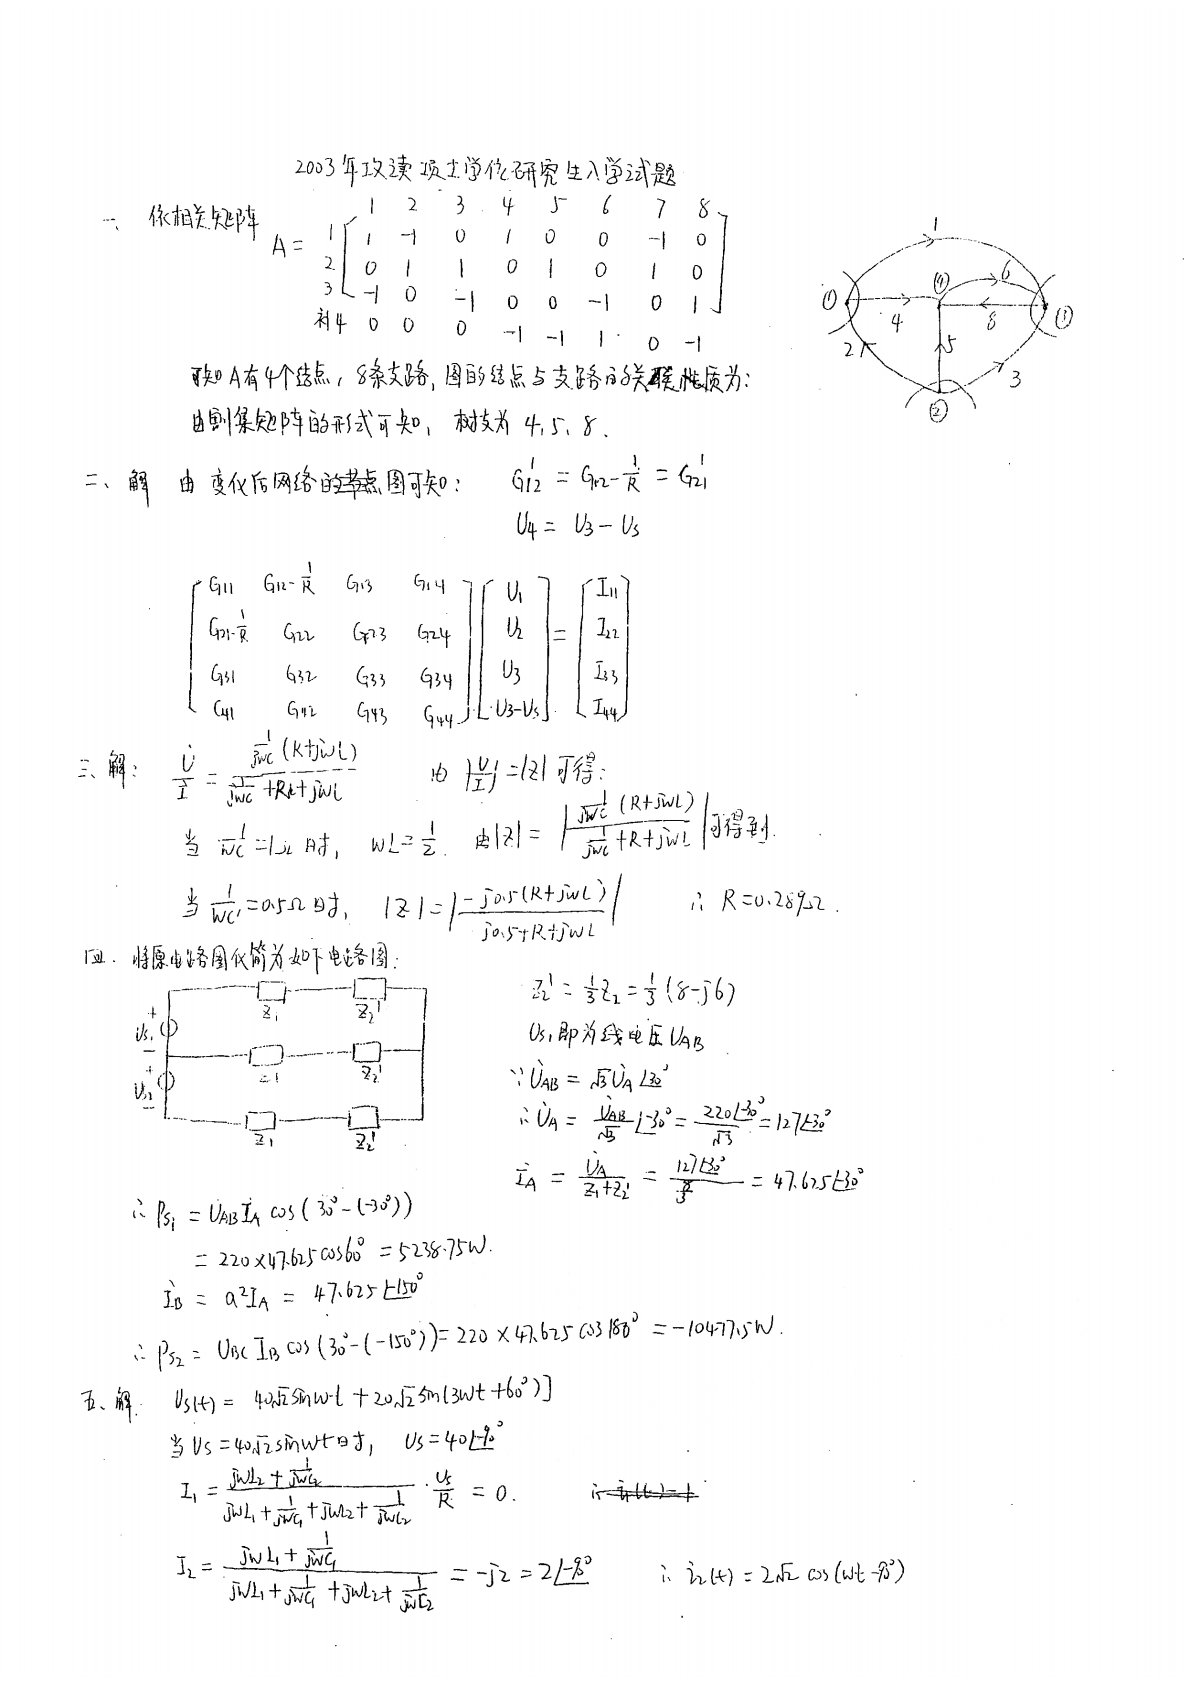 2003年攻读硕士学位研究生入学试题
一、依相关矩阵
1 2 3 4 5 6 7 8
A= 1 [ 1 -1 0 1 0 0 -1 0
2 0 1 1 0 1 0 1 0
3 -1 0 -1 0 0 -1 0 1 ]
补4 0 0 0 -1 -1 1 0 -1
1
① ④ 6 ③
4 8
2 5 3
②
可知A有4个结点，8条支路，图的结点与支路的关联性质为：
由割集矩阵的形式可知，树支为 4、5、8.
二、解 由变化后网络的节点图可知： G'12 = G12 - 1/R = G'21
U4 = U3 - Us
[ G11 G12-1/R G13 G14 ] [ U1 ] = [ I11 ]
[ G21-1/R G22 G23 G24 ] [ U2 ] [ I22 ]
[ G31 G32 G33 G34 ] [ U3 ] [ I33 ]
[ G41 G42 G43 G44 ] [ U3-Us ] [ I44 ]
三、解： U̇/İ = 1/jwC (R+jwL) / (1/jwC + R + jwL) 由 |U/I| = |Z| 可得：
当 1/wC = 1Ω 时， wL = 1/2. 由|Z| = | 1/jwC (R+jwL) / (1/jwC + R + jwL) | 可得到.
当 1/wC' = 0.5Ω 时， |Z| = | -j0.5(R+jwL) / j0.5+R+jwL | ∴ R=0.289Ω.
四. 将原电路图化简为如下电路图：
Z1 Z2' Us1 + −
Z1 Z2' Us2 + −
Z1 Z2'
Z2' = 1/3 Z2 = 1/3 (8-j6)
Us1即为线电压UAB
∵ U̇AB = √3 U̇A ∠30°
∴ U̇A = U̇AB/√3 ∠-30° = 220∠-30°/√3 = 127∠-30°
İA = U̇A/(Z1+Z2') = 127∠-30° / (8/3) = 47.625∠-30°
∴ Ps1 = UAB IA cos(30°-(-30°))
= 220×47.625cos60° = 5238.75W.
İB = a²IA = 47.625∠-150°
∴ Ps2 = UBC IB cos(30°-(-150°)) = 220×47.625 cos180° = -10477.5W.
五、解. Us(t) = 40√2 sinwt + 20√2 sin(3wt+60°)]
当 Us = 40√2 sinwt 时， Us = 40∠-90°
I1 = (jwL2 + 1/jwC2) / (jwL1 + 1/jwC1 + jwL2 + 1/jwC2) · Us/R = 0.
I2 = (jwL1 + 1/jwC1) / (jwL1 + 1/jwC1 + jwL2 + 1/jwC2) = -j2 = 2∠-90° ∴ i2(t) = 2√2 cos(wt-90°)